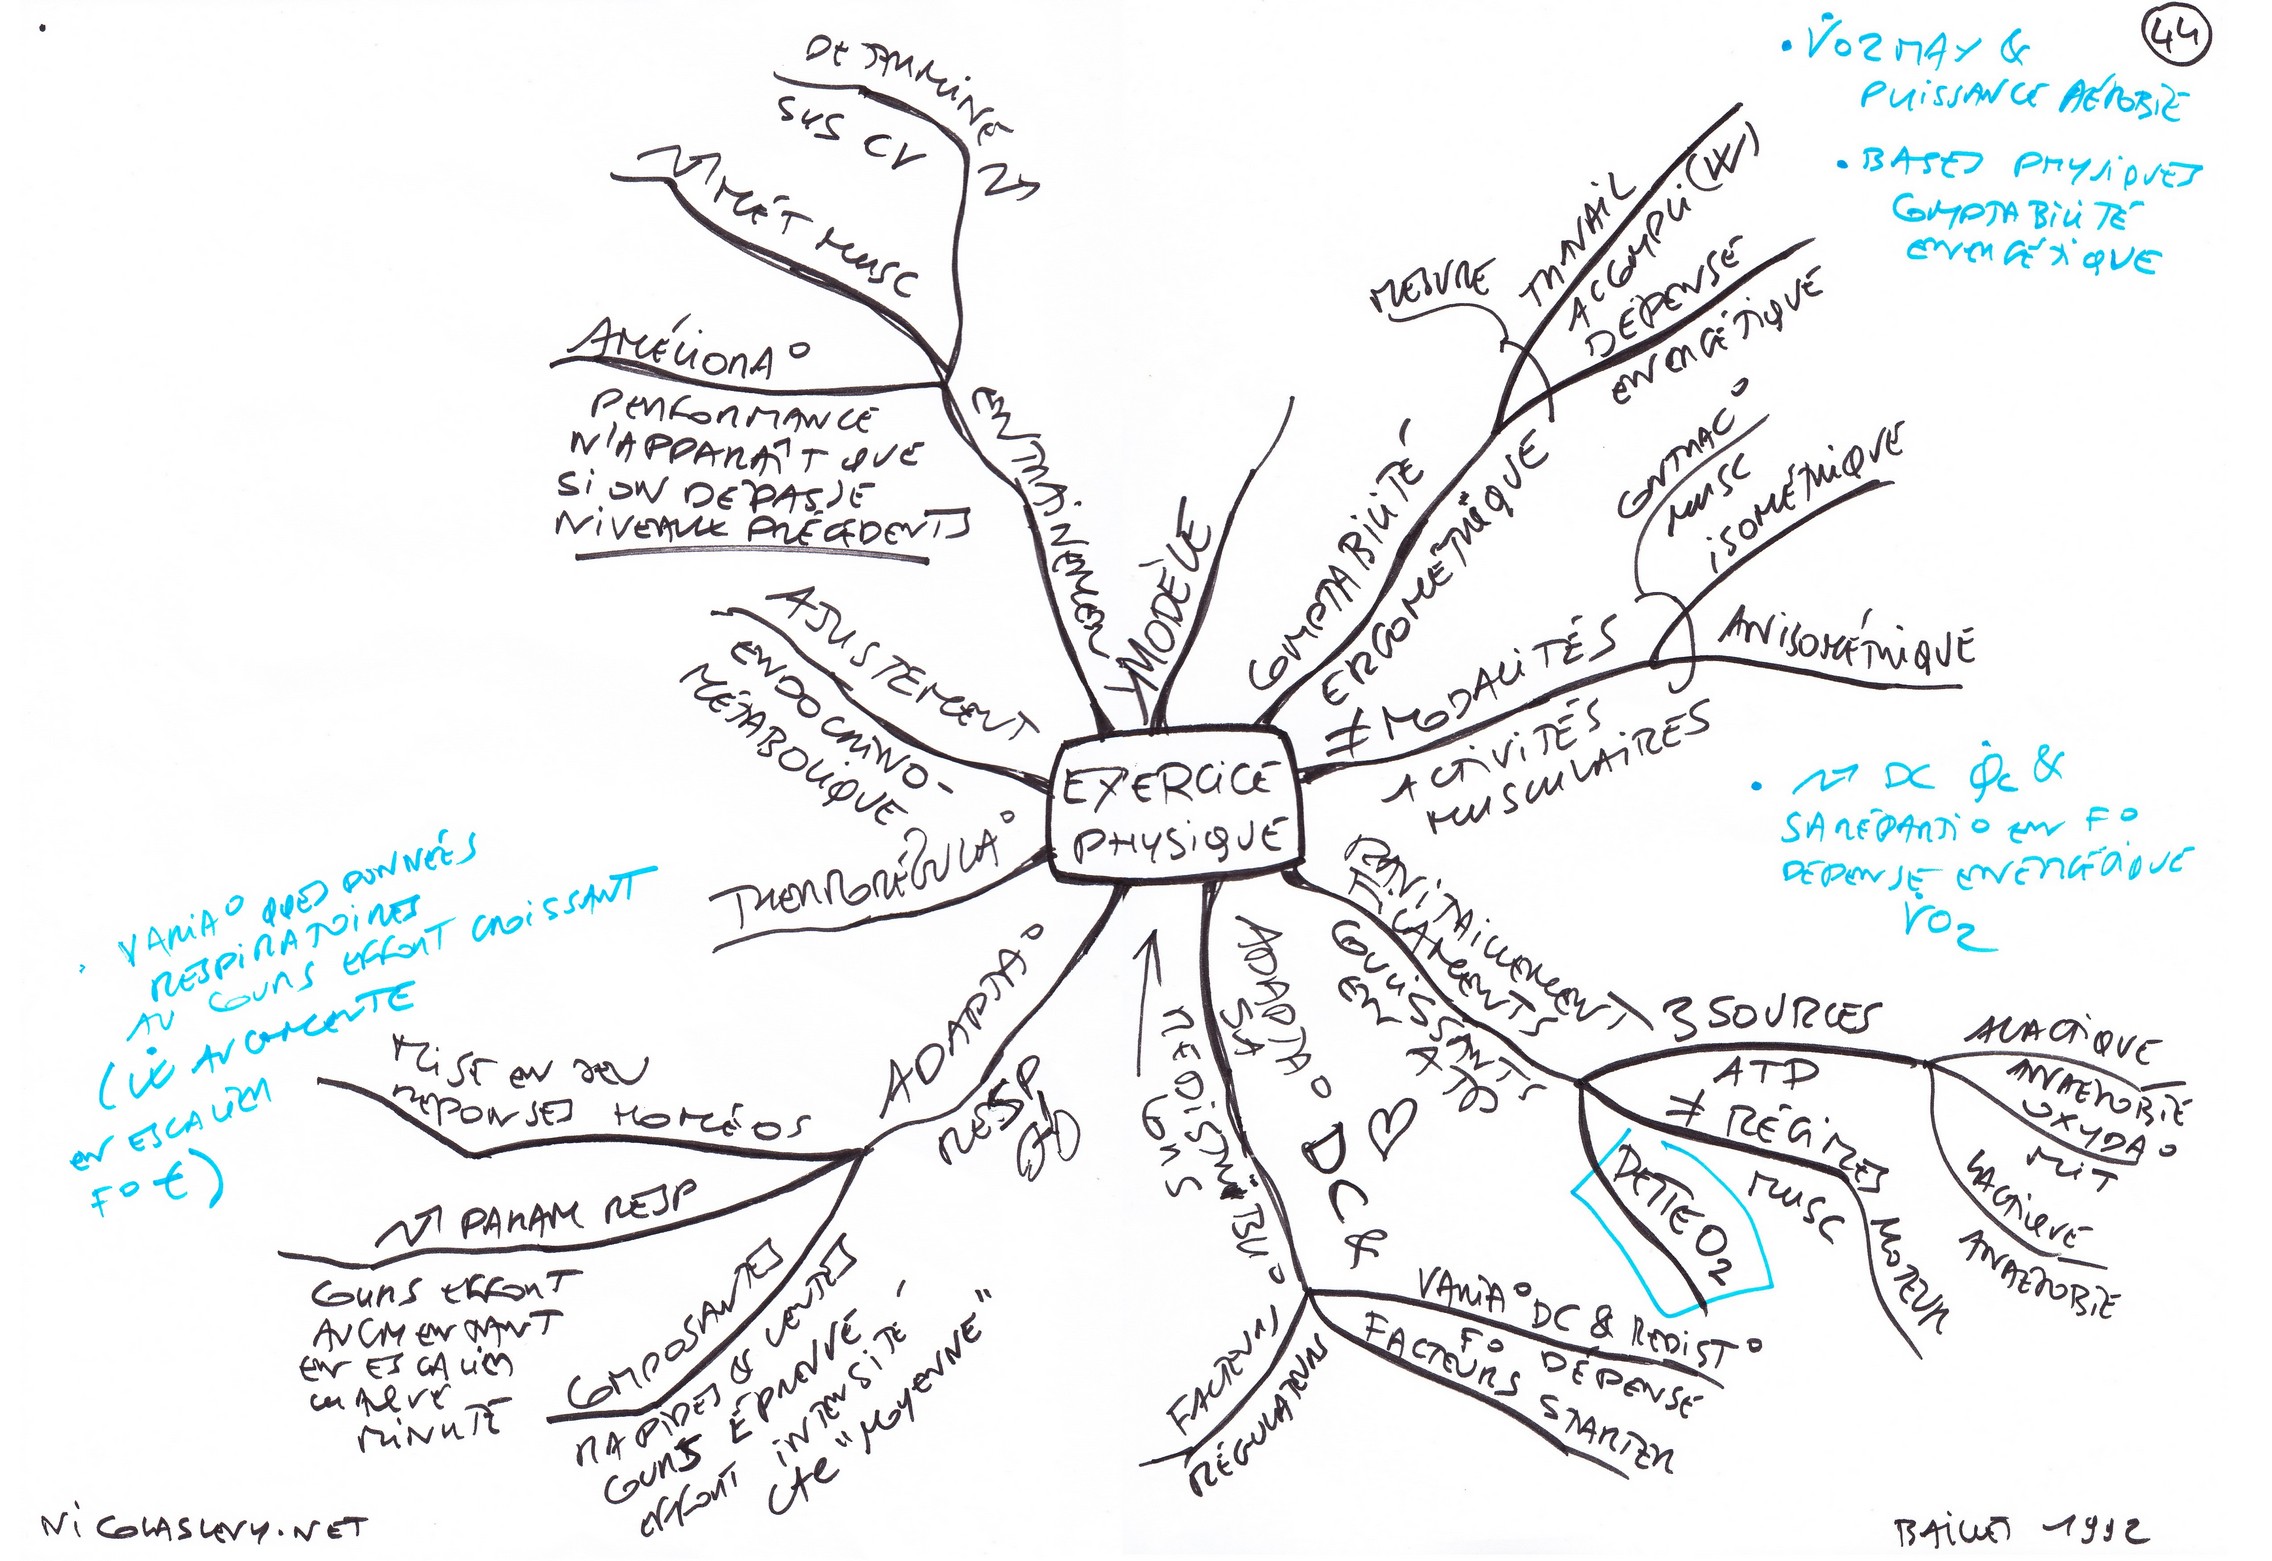 44
• V̇O2 MAX &
PUISSANCE AÉROBIE
• BASES PHYSIQUES
COMPTABILITÉ
ENERGÉTIQUE
DÉTERMINE
SUS CV
MÉT MUSC
AMÉLIORA°
PERFORMANCE
N'APPARAÎT QUE
SI ON DÉPASSE
NIVEAUX PRÉCÉDENTS
ENTRAÎNEMENT
MODÈLE
MESURE
TRAVAIL
ACCOMPLI (W)
DÉPENSE
ENERGÉTIQUE
COMPTABILITÉ
ERGOMÉTRIQUE
CONTRAC°
MUSC
ISOMÉTRIQUE
ANISOMÉTRIQUE
≠ MODALITÉS
ACTIVITÉS
MUSCULAIRES
AJUSTEMENT
ENDOCRINO-
MÉTABOLIQUE
THERMORÉGULA°
EXERCICE
PHYSIQUE
• DC Q̇c &
SA RÉPARTI° EN F°
DÉPENSE ENERGÉTIQUE
V̇O2
RAVITAILLEMENT
FILAMENTS
COULISSANTS
EN ATP
3 SOURCES
ATP
ALACTIQUE
ANAEROBIE
OXYDA°
MIT
LACTIQUE
ANAEROBIE
≠ RÉGIMES
MUSC
MOTEUR
DETTE O2
ADAPTA° DC &
SA
REDISTRIBU°
SANG
VARIA° DC & REDIST°
F° DÉPENSE
FACTEURS STARTER
FACTEURS
RÉGULATEURS
ADAPTA°
RESP
MISE EN JEU
REPONSES HOMÉOS
PARAM RESP
COURS EFFORT
AUGMENTANT
EN ESCALIER
CHAQUE
MINUTE
COMPOSANTES
RAPIDES & LENTES
COURS ÉPREUVE
EFFORT INTENSITÉ
CTE "MOYENNE"
• VARIA° QQES DONNÉES
RESPIRATOIRES
AU COURS EFFORT CROISSANT
(Ẇ AUGMENTE
EN ESCALIER
F° t)
NICOLASLEVY.NET
BAILLET 1992